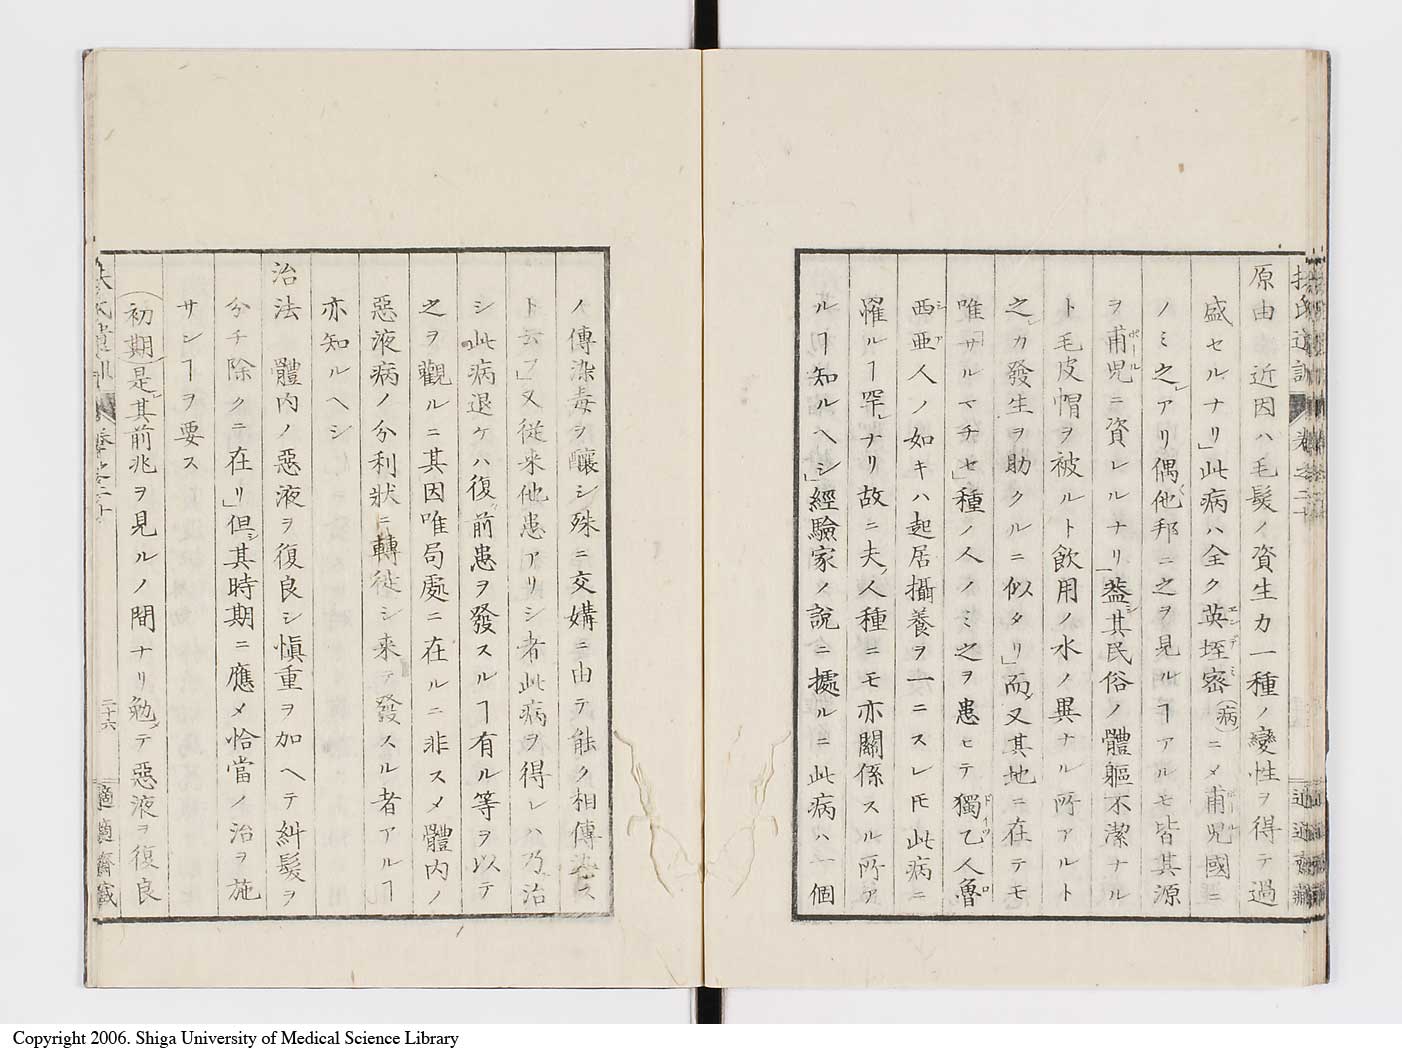 扶氏遺訓 卷之二十
適適齋藏
原由 近因ハ毛髮ノ資生力一種ノ變性ヲ得テ過
盛セルナリ」此病ハ全ク英垤密(病)ニメ甫児國ニ
ノミ之レアリ偶他邦ニ之ヲ見ルヿアルモ皆其源
ヲ甫児ニ資レルナリ」蓋其民俗ノ體軀不潔ナル
ト毛皮帽ヲ被ルト飲用ノ水ノ異ナル所アルト
之レカ發生ヲ助クルニ似タリ」而又其地ニ在テモ
唯「サルマチセ」種ノ人ノミ之ヲ患ヒテ獨乙人魯
西亜人ノ如キハ起居攝養ヲ一ニスレ𪜈此病ニ
罹ルヿ罕ナリ故ニ夫ノ人種ニモ亦關係スル所ア
ルヿ知ルヘシ」經驗家ノ說ニ據ルニ此病ハ一個
ノ傳染毒ヲ釀シ殊ニ交媾ニ由テ能ク相傳染ス
ト云フ」又従来他患アリシ者此病ヲ得レハ乃治
シ此病退ケハ復前患ヲ發スルヿ有ル等ヲ以テ
之ヲ觀ルニ其因唯局處ニ在ルニ非スメ體内ノ
惡液病ノ分利狀ニ轉徙シ来テ發スル者アルヿ
亦知ルヘシ
治法 體内ノ惡液ヲ復良シ愼重ヲ加ヘテ糾髮ヲ
分チ除クニ在リ」但其時期ニ應メ恰當ノ治ヲ施
サンヿヲ要ス
(初期)是レ其前兆ヲ見ルノ間ナリ勉テ惡液ヲ復良
扶氏遺訓 卷之二十
二十六
適適齋藏
Copyright 2006. Shiga University of Medical Science Library